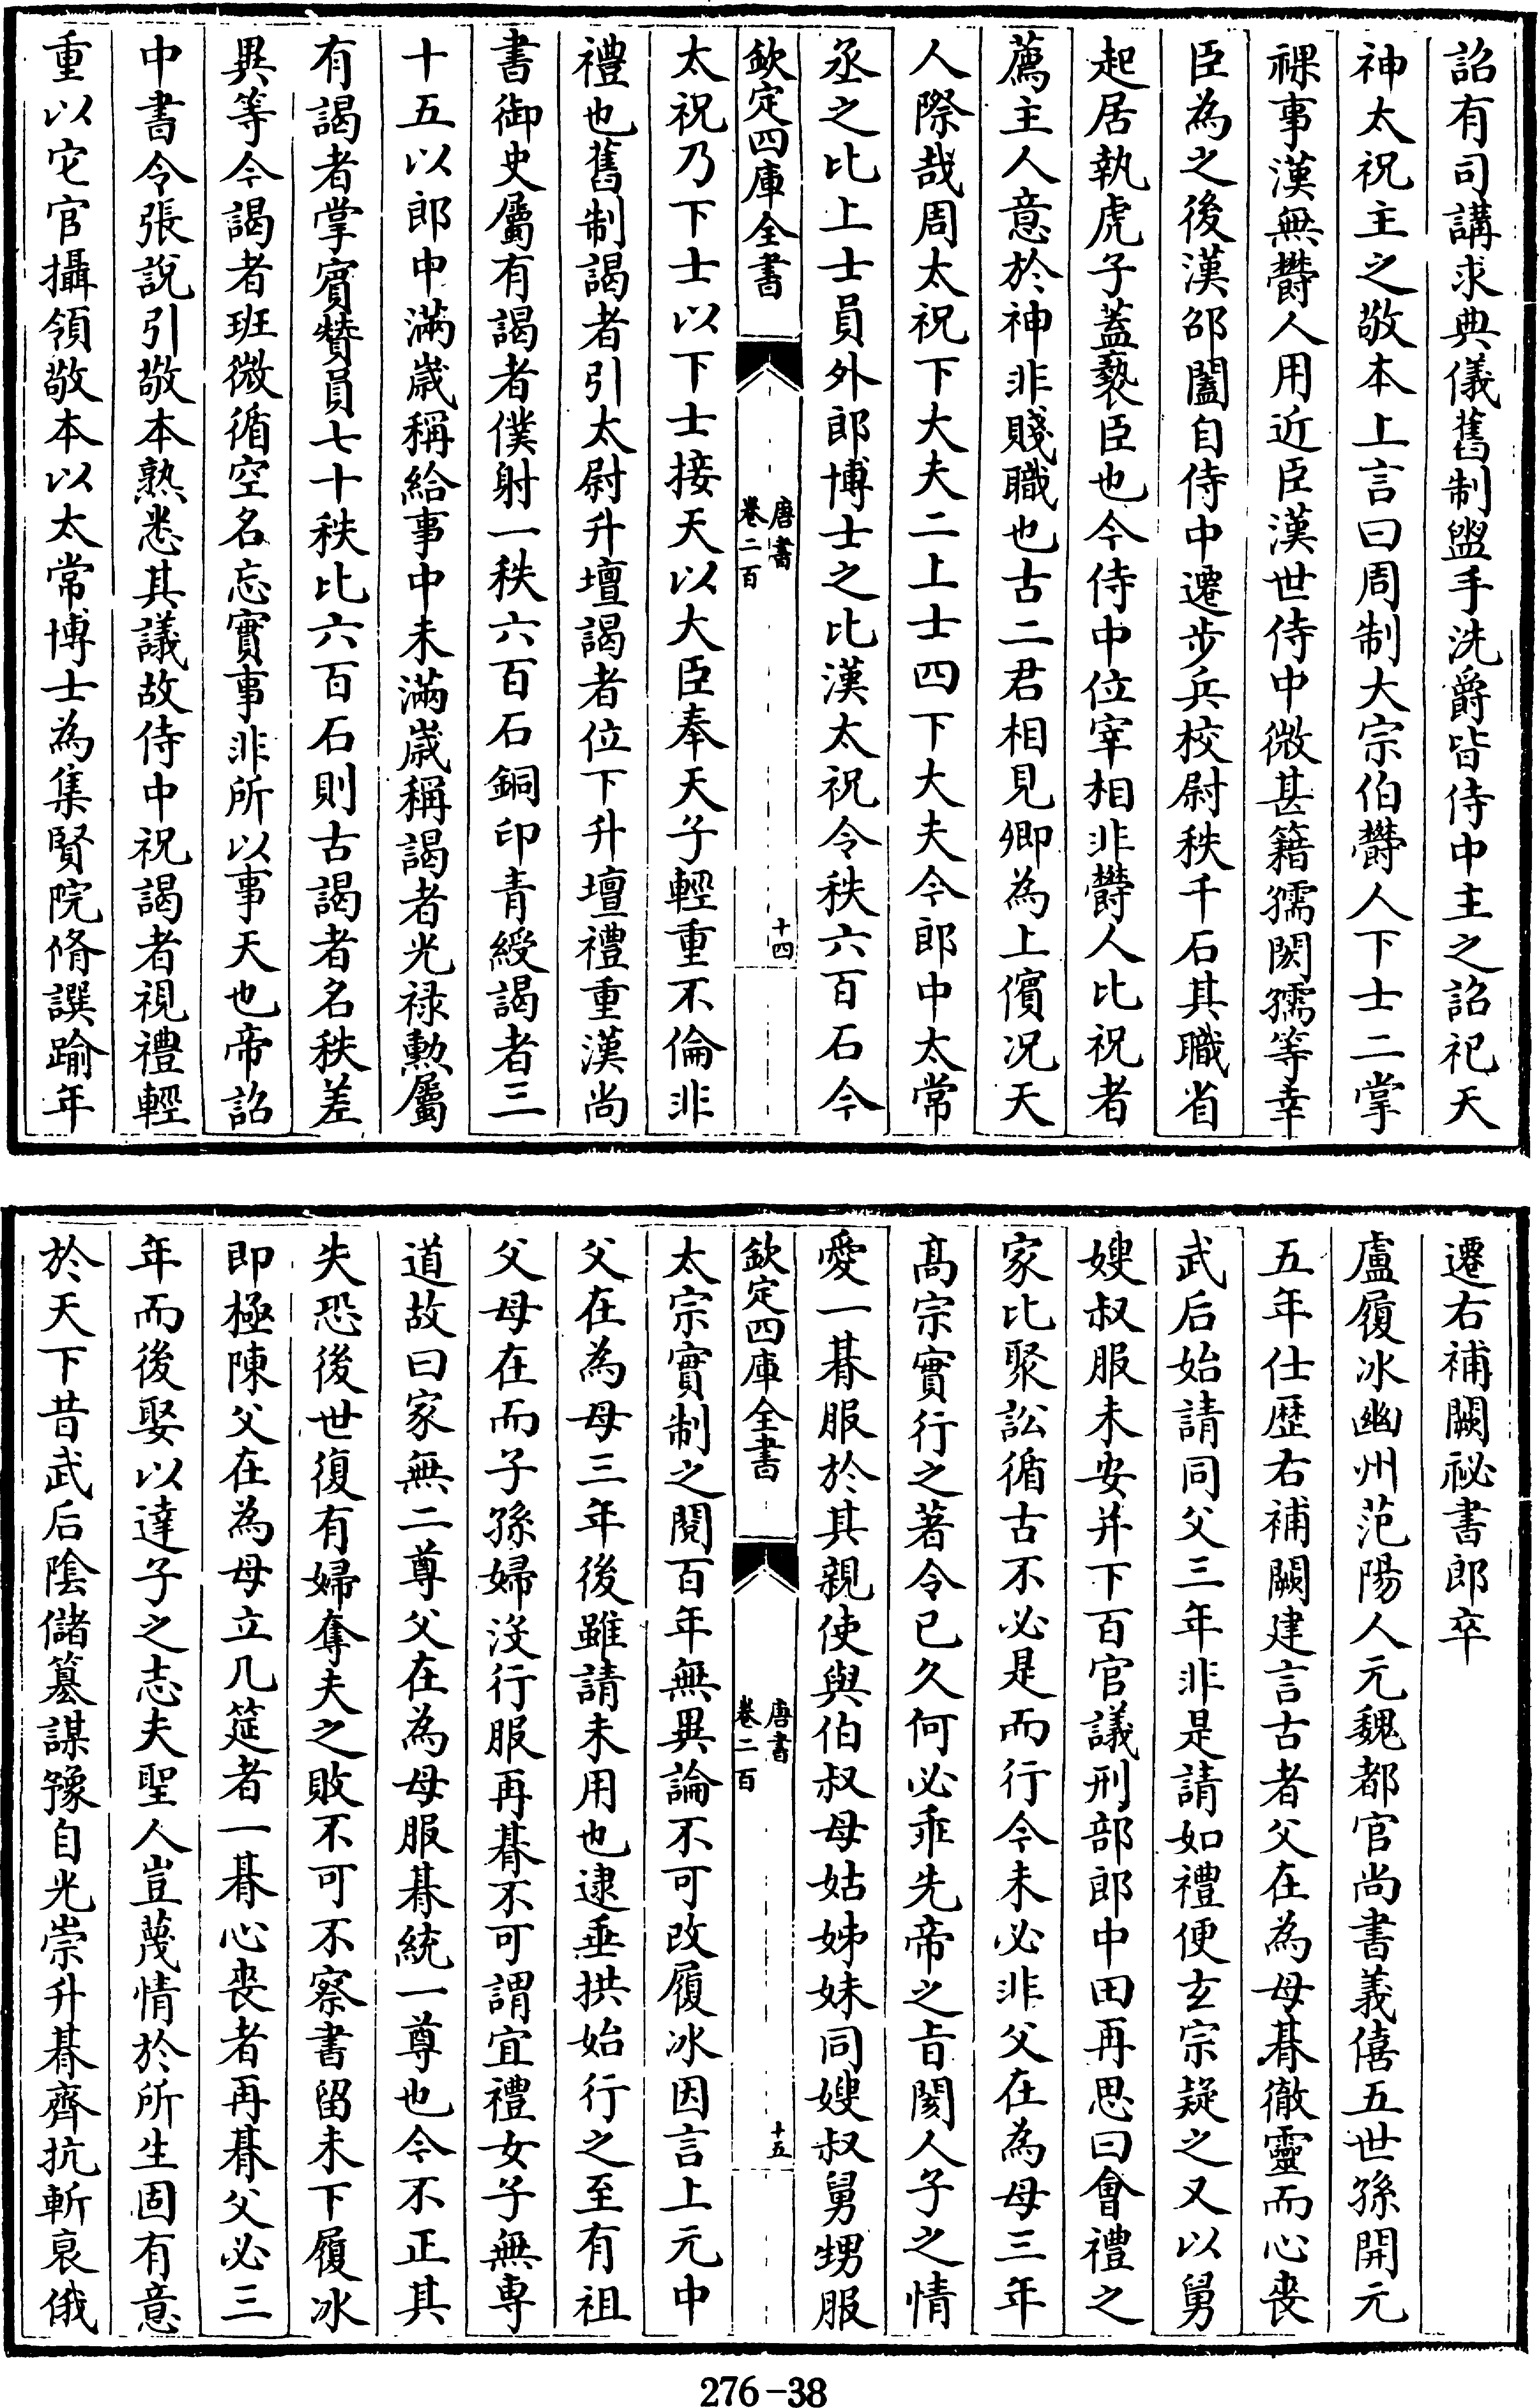 詔有司講求典儀舊制盥手洗爵皆侍中主之詔祀天
神太祝主之敬本上言曰周制大宗伯鬱人下士二掌
祼事漢無鬱人用近臣漢世侍中微甚籍孺閎孺等幸
臣為之後漢邵闔自侍中遷步兵校尉秩千石其職省
起居執虎子蓋褻臣也今侍中位宰相非鬱人比祝者
薦主人意於神非賤職也古二君相見卿為上儐况天
人際哉周太祝下大夫二上士四下大夫今郎中太常
丞之比上士員外郎博士之比漢太祝令秩六百石今
欽定四庫全書
唐書
卷二百
十四
太祝乃下士以下士接天以大臣奉天子輕重不倫非
禮也舊制謁者引太尉升壇謁者位下升壇禮重漢尚
書御史屬有謁者僕射一秩六百石銅印青綬謁者三
十五以郎中滿歲稱給事中未滿歲稱謁者光禄勲屬
有謁者掌賓贊員七十秩比六百石則古謁者名秩差
異等今謁者班微循空名忘實事非所以事天也帝詔
中書令張説引敬本熟悉其議故侍中祝謁者視禮輕
重以它官攝領敬本以太常博士為集賢院脩譔踰年
遷右補闕祕書郎卒
盧履冰幽州范陽人元魏都官尚書義僖五世孫開元
五年仕歴右補闕建言古者父在為母朞徹靈而心喪
武后始請同父三年非是請如禮便玄宗疑之又以舅
嫂叔服未安并下百官議刑部郎中田再思曰會禮之
家比聚訟循古不必是而行今未必非父在為母三年
髙宗實行之著令已久何必乖先帝之旨閡人子之情
愛一朞服於其親使與伯叔母姑姊妹同嫂叔舅甥服
欽定四庫全書
唐書
卷二百
十五
太宗實制之閱百年無異論不可改履冰因言上元中
父在為母三年後雖請未用也逮垂拱始行之至有祖
父母在而子孫婦沒行服再朞不可謂宜禮女子無専
道故曰家無二尊父在為母服朞統一尊也今不正其
失恐後世復有婦奪夫之敗不可不察書留未下履冰
即極陳父在為母立几筵者一朞心喪者再朞父必三
年而後娶以達子之志夫聖人豈蔑情於所生固有意
於天下昔武后陰儲簒謀豫自光崇升朞齊抗斬衰俄
276-38